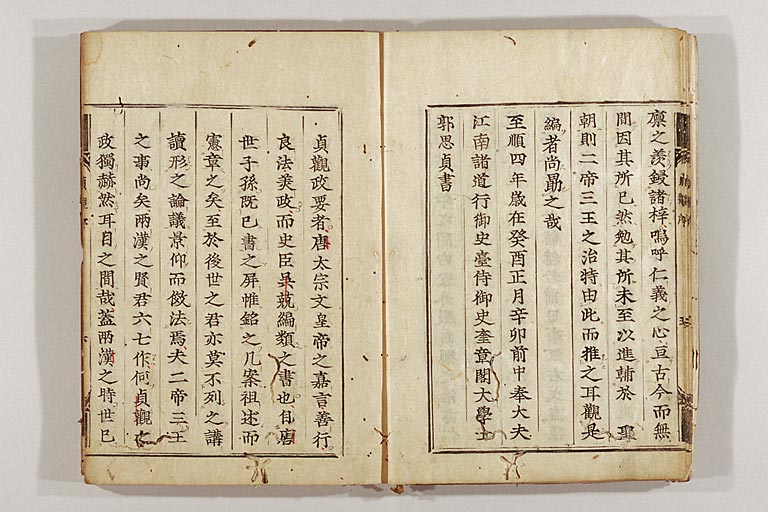 廪之羡鋟諸梓嗚呼仁義之心亘古今而無
間因其所已然勉其所未至以進輔於聖
朝則二帝三王之治特由此而推之耳觀是
編者尚勗之哉
至順四年歲在癸酉正月辛卯前中奉大夫
江南諸道行御史臺侍御史奎章閣大學士
郭思貞書
貞觀政要者唐太宗文皇帝之嘉言善行
良法美政而史臣吳兢編類之書也自唐
世子孫既已書之屏帷銘之几案祖述而
憲章之矣至於後世之君亦莫不列之講
讀形之論議景仰而傚法焉夫二帝三王
之事尚矣兩漢之賢君六七作何貞觀之
政獨赫然耳目之間哉蓋兩漢之時世已